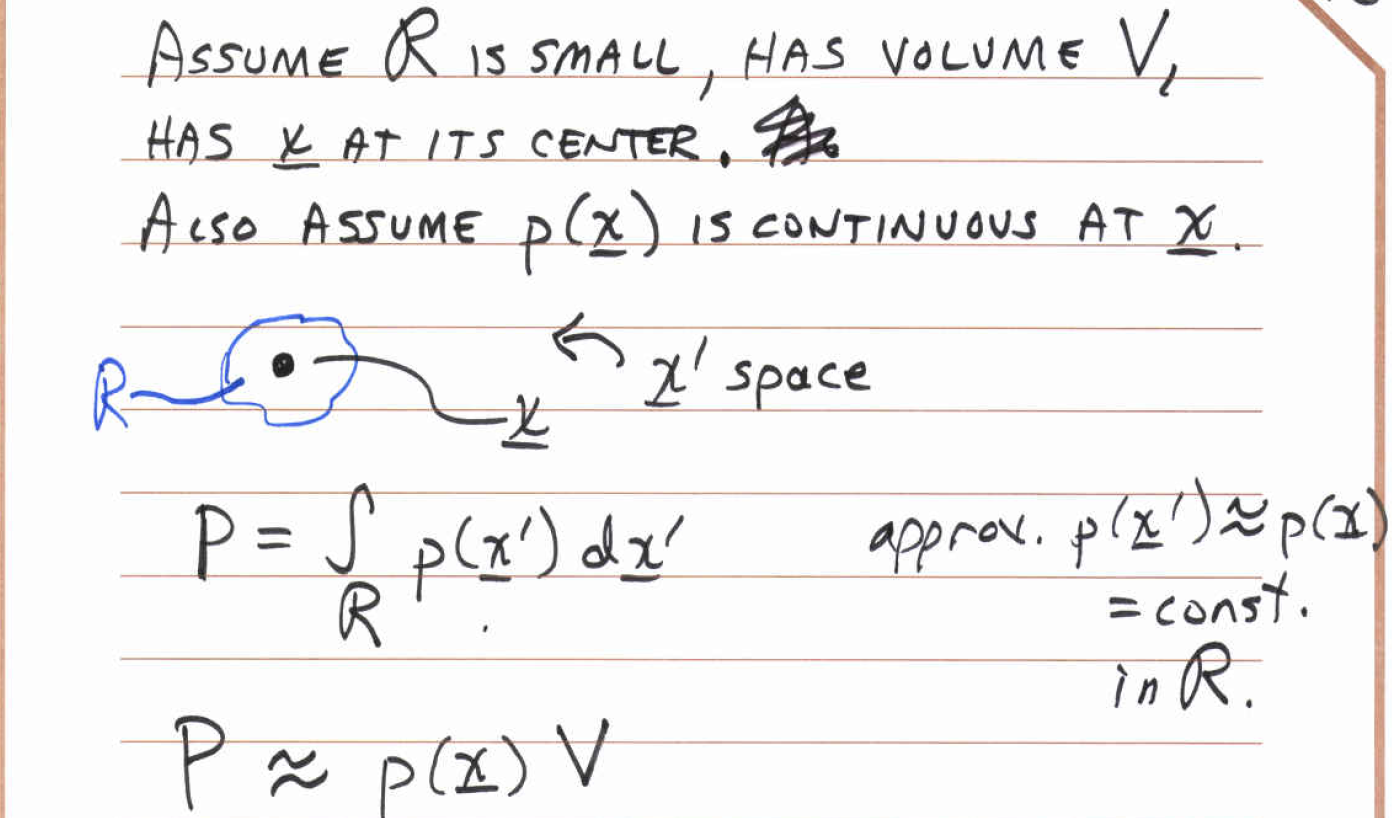 ASSUME R IS SMALL, HAS VOLUME V,
HAS x AT ITS CENTER.
ALSO ASSUME p(x) IS CONTINUOUS AT x.
x' space
R
x
P = ∫ p(x') dx' approx. p(x') ≈ p(x)
R = const.
in R.
P ≈ p(x) V